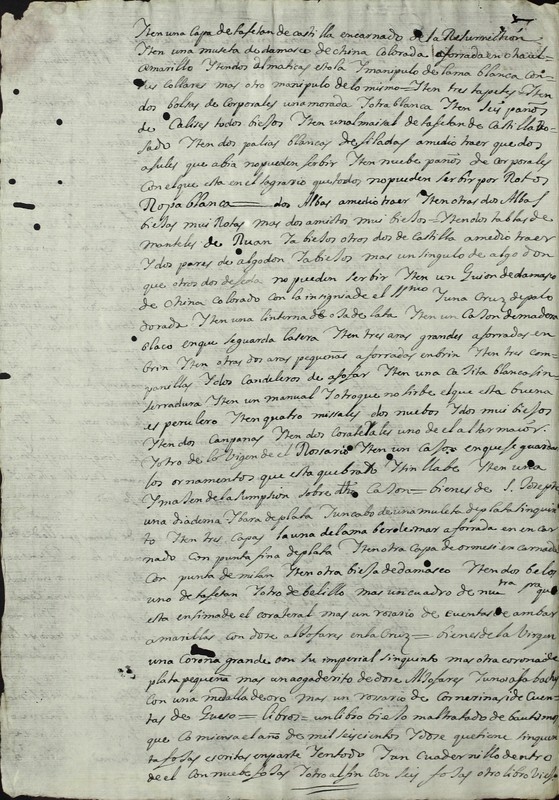 Yten una Capa de tafetan de castilla encarnado de la Resurrection
Yten una museta de damasco de china Colorada aforrada en chaul
Amarillo Yten dos dalmaticas estola Y manipulo de lama blanca con
sus collares mas otro manipulo de lo mismo Yten tres tapetes Yten
dos bolsas de corporales una morada Y otra blanca Yten seis paños
de Calises todos biejos Yten un almaisal de tafetan de Castilla Ro
sado Yten dos palias blancas desiladas a medio traer que dos
asules que abia no pueden serbir Yten nuebe paños de corporales
Con el que esta en el sagrario que todos no pueden serbir por Rotos
Ropa blanca = dos Albas a medio traer Yten otras dos Albas
biejas mui Rotas mas dos amictos mui biejos Yten dos tablas de
manteles de Ruan Ya biejos otros dos de Castilla a medio traer
Y dos pares de algodon Ya biejos mas un singulo de algodon
que otros dos de seda no pueden serbir Yten un Guion de damasco
de China Colorado con la insignia de el SSmo Y una Cruz de palo
dorada Yten una linterna de oja de lata Yten un Cajon de madera
blaco en que se guarda la sera Yten tres aras grandes aforradas en
brin Yten otras dos aras pequeñas aforradas en brin Yten tres com
panillas Y dos Candeleros de asofar Yten una Cajita blanca sin
serradura Yten un manual Y otro que no sirbe el que esta buena
es perulero Yten quatro missales dos nuebos Y dos mui biejos
Yten dos Campanas Yten dos Corateales uno de el altar maior
Y otro de la Virgen de el Rosario Yten un Cajon en que se guardan
los ornamentos que esta quebrado Y sin llabe Yten una
Ymajen de la Asumpsion sobre dho Cajon = bienes de S. Joseph
una diadema Y bara de plata Y un cabo de una muleta de plata sin quin
to Yten tres Capas la una de lama berdemar aforrada en encar
nado con punta fina de plata Yten otra Capa de ormesi encarnado
con punta de milan Yten otra bieja de damasco Yten dos belos
uno de tafetan Y otro de belillo mas un cuadro de nuetra sra que
esta ensima de el corateral mas un rosario de cuentas de ambar
amarillas con dose aljofares en la Cruz = bienes de la Virgen
una Corona grande con su imperial sin quinto mas otra corona de
plata pequeña mas un aogaderito de dose Aljofares
con una medalla de oro mas un rosario de Cornerinas de Cuen
tas de Gueso = libros = un libro biejo maltratado de bautismos
que Comiensa el año de mil seiscientos Y dose que tiene sinquen
ta fojas escritas en parte Y en todo Y un Cuadernillo dentro
de el Con nuebe fojas Y otro al fin con seis fojas otro libro biejo